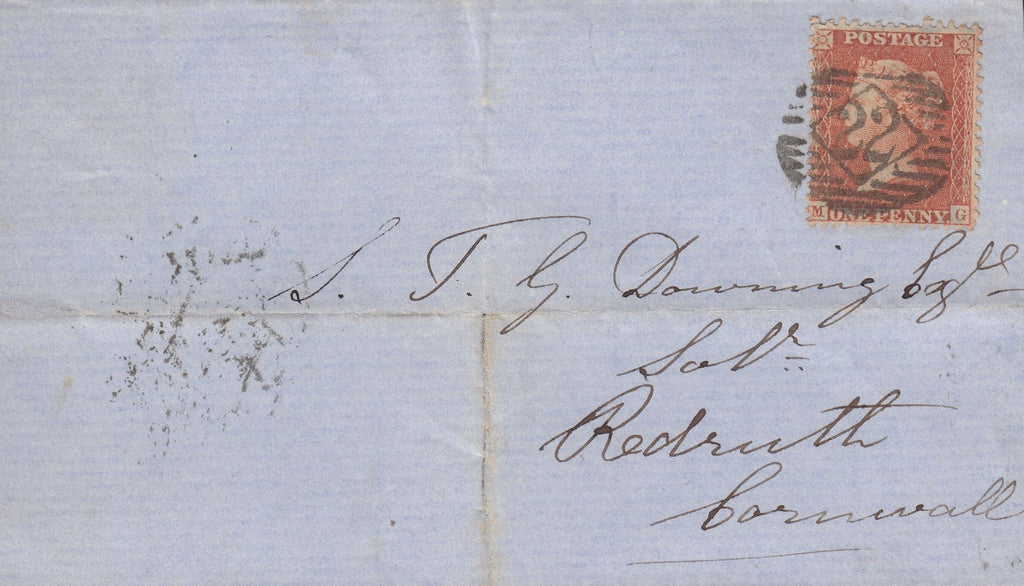 POSTAGE
22
M ONE PENNY G
S. T. G. Downing Esqre
Solr
Redruth
Cornwall